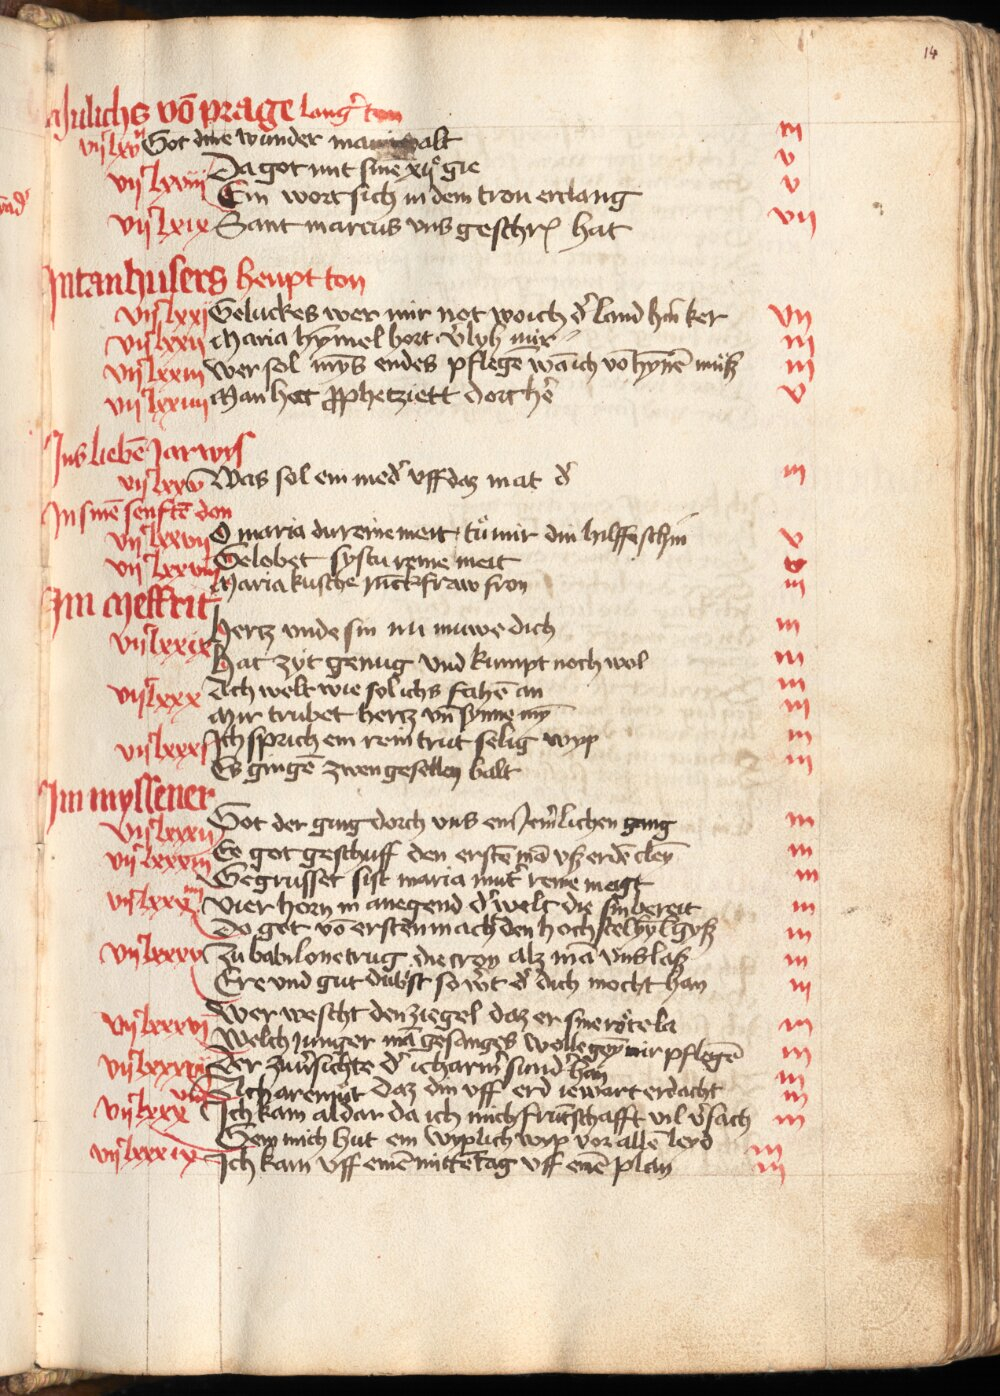 14
mulichs võ prage lang' ton
vijͨ lxvij Got dine wunder manigualt iij
Da got mit sine xij gie v
vijͨ lxviij Ein wort sich in dem tron erclang v
vijͨ lxix Sant marcus vns geschrꝭ hat vij
In tanhusers heupt ton
vijͨ lxxj Geluckes wer mir not wo ich d' land hin ker vij
vijͨ lxxij Maria hymel hort v'lyh mir iij
vijͨ lxxiij Wer sol myns endes pflegē wā ich vō hynnē muß iij
vijͨ lxxiiij Man hat prophetziett dort he' v
Ins liebē Jarwis
vijͨ lxxv Was sol ein med' vff daz mat d' iij
In sinē senftē don
vijͨ lxxvij O maria du reine meit tu mir din hilffe schin v
vijͨ lxxviij Gelobet systu reine meit
Maria kusche Junckfraw fron iij
Im Meffrit
Hertz vnde sin nu muwe dich iij
vijͨ lxxix Hat zyt genug vnd kumpt noch wol iij
Ach welt wie sol ichs fahē an iij
vijͨ lxxx Mir trubet hertz vn̄ synne mȳ iij
Ich sprich ein rein trut selig wyp iij
vijͨ lxxxj Es gingē zwen gesellen balt iij
Im myssener
Got der ging dorch vns ein Jem'lichen gang iij
vijͨ lxxxij Ee got geschuff den erstē mā vß erdē cleȳ iij
vijͨ lxxxiij Gegrusset sist maria mut' reine meigt iij
vijͨ lxxxiiij Vier horn in anegend d' welt die sin bereit iij
Do got võ ersten mach den hoch sel hylgyst iij
vijͨ lxxxv Zu babilone trug die cron alz mā vns laß iij
Ere vnd gut dubst so w't d' dich mocht han iij
Wer wescht den ziegel daz er sine röte la
vijͨ lxxxvj Welch Junger mā gesanges wolle gen mir pflegē iij
vijͨ lxxxvij Der zuu'sichte d' ich arm' sund' han iij
Ach aremut daz din vff erd ie wart erdacht iij
vijͨ lxxx Ich kam aldar da ich mich früntschafft vil v'sach iij
Sem mich hut ein wyplich wyp vor alle leyd iij
vijͨ lxxxix Ich kam vff einē mittētag vff einē plan iij